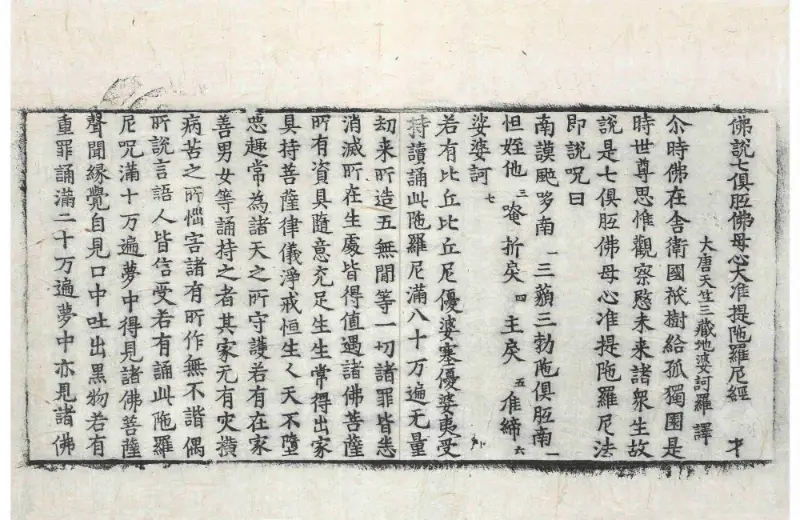 佛說七俱胝佛母心大准提陁羅尼經 才
大唐天竺三藏地婆訶羅 譯
尒時佛在舎衛國祇樹給孤獨園是
時世尊思惟觀察愍未來諸衆生故
說是七俱胝佛母心准提陁羅尼法
即說呪曰
南謨颯哆南 一 三藐三勃陁俱胝南 二
怛姪他 三 唵 折戾 四 主戾 五 准締 六
娑婆訶 七
若有比丘比丘尼優婆塞優婆夷受
持讀誦此陁羅尼滿八十万遍无量
劫来所造五无間等一切諸罪皆悉
消滅所在生處皆得值遇諸佛菩薩
所有資具隨意充足生生常得出家
具持菩薩律儀淨戒恒生人天不墮
惡趣常為諸天之所守護若有在家
善男女等誦持之者其家无有灾橫
病苦之所惱害諸有所作無不諧偶
所說言語人皆信受若有誦此陁羅
尼呪滿十万遍夢中得見諸佛菩薩
聲聞緣覺自見口中吐出黑物若有
重罪誦滿二十万遍夢中亦見諸佛